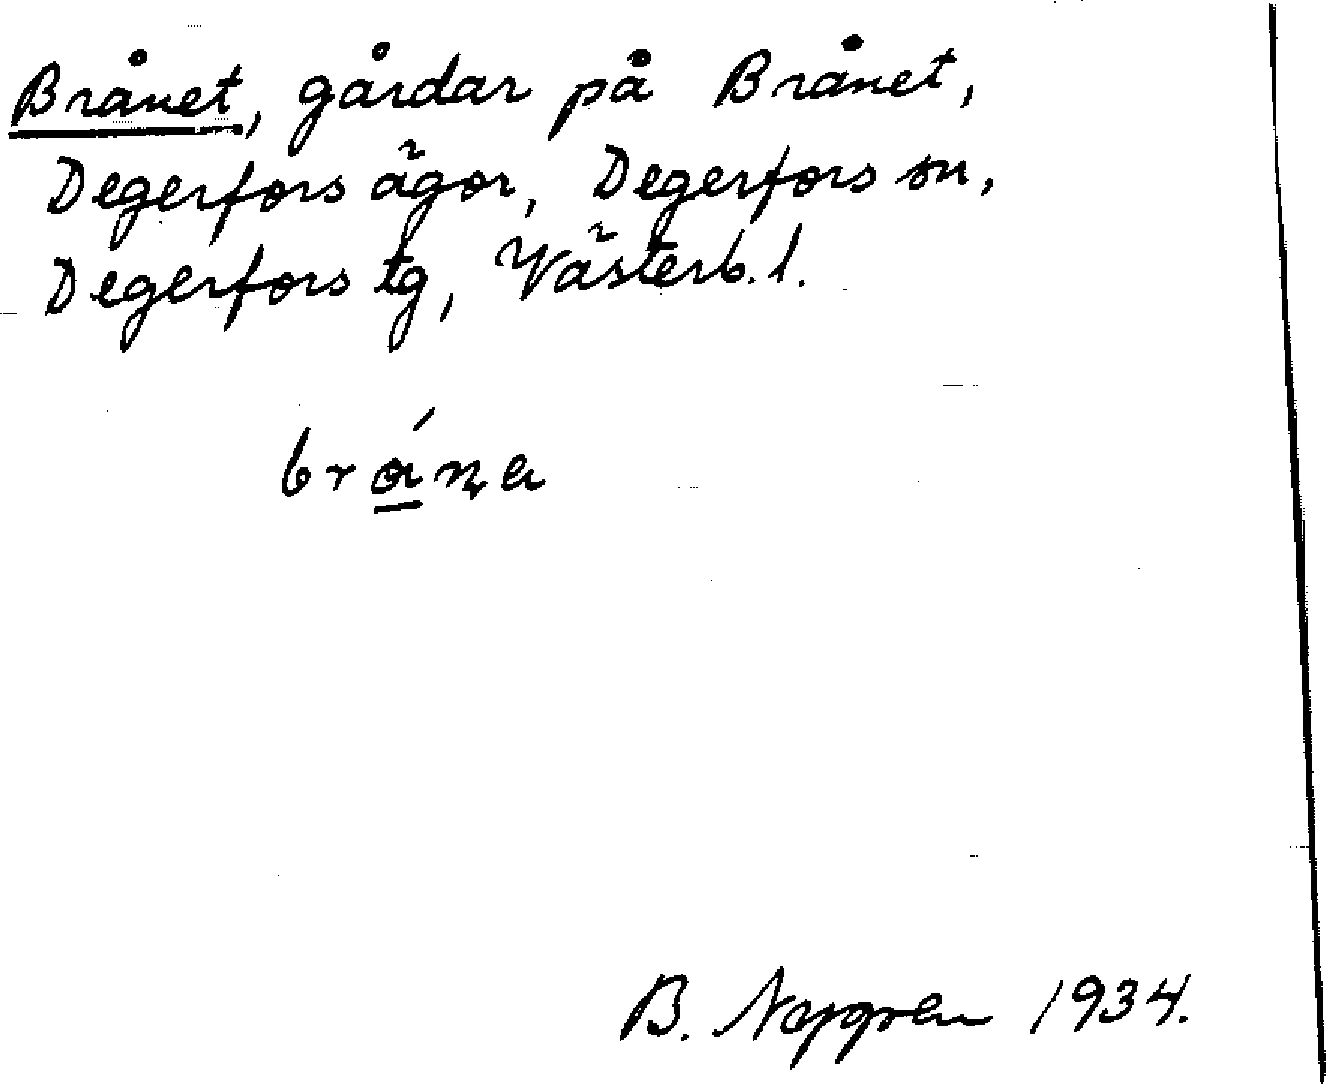 Brånet, gårdar på Brånet,
Degerfors ägor, Degerfors sn,
Degerfors tg, Västerb. l.
B. Nygren 1934.